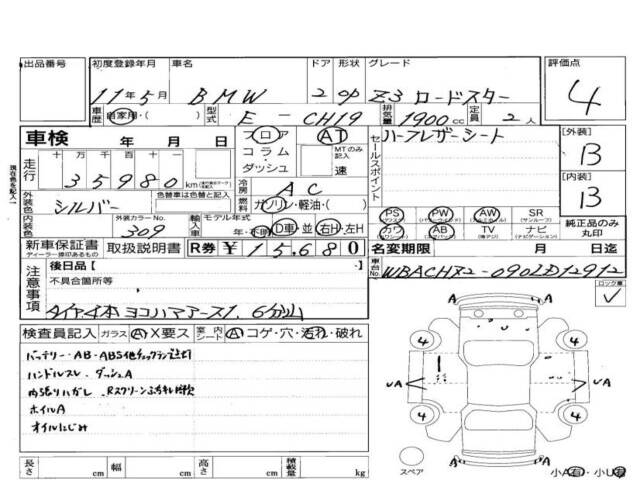 出品番号 初度登録年月 車名 ドア 形状 グレード 評価点
11年5月 BMW 2 OP Z3 ロードスター 4
車歴 自家用・( ) 型式 E-CH19 排気量 1900 cc 定員 2 人
車検 年 月 日 フロア コラム・ダッシュ AT MTのみ記入 速
セールスポイント ハーフレザーシート
[外装] B
走行 十 万 千 百 十 一
35980 km
冷房 AC
[内装] B
外装色 シルバー 色替車は色替と記入 燃料 ガソリン・軽油・( )
PS PW AW SR
カワ AB TV ナビ
純正品のみ丸印
内装色 外装カラーNo. 309 輸入車 モデル年式 年・不明 D車・並 右H・左H
新車保証書 取扱説明書 R券 ¥15,680
ディーラー捺印あるもの
名変期限 月 日迄
注意事項 後日品 [ ]
不具合箇所等
車台No.
ロック車
タイヤ4本 ヨコハマアース1. 6分山
検査員記入 ガラス A・X要ス 室内シート A・コゲ・穴・汚れ・破れ
バッテリー・AB・ABS他チェックランプ点灯
ハンドルスレ・ダッシュA
内張りハガレ
ホイルA
オイルにじみ
4 4
A A
UA UA
4 4
A A
スペア
小A有・小U有
長さ cm 幅 cm 高さ cm 積載量 kg
現在色を記入